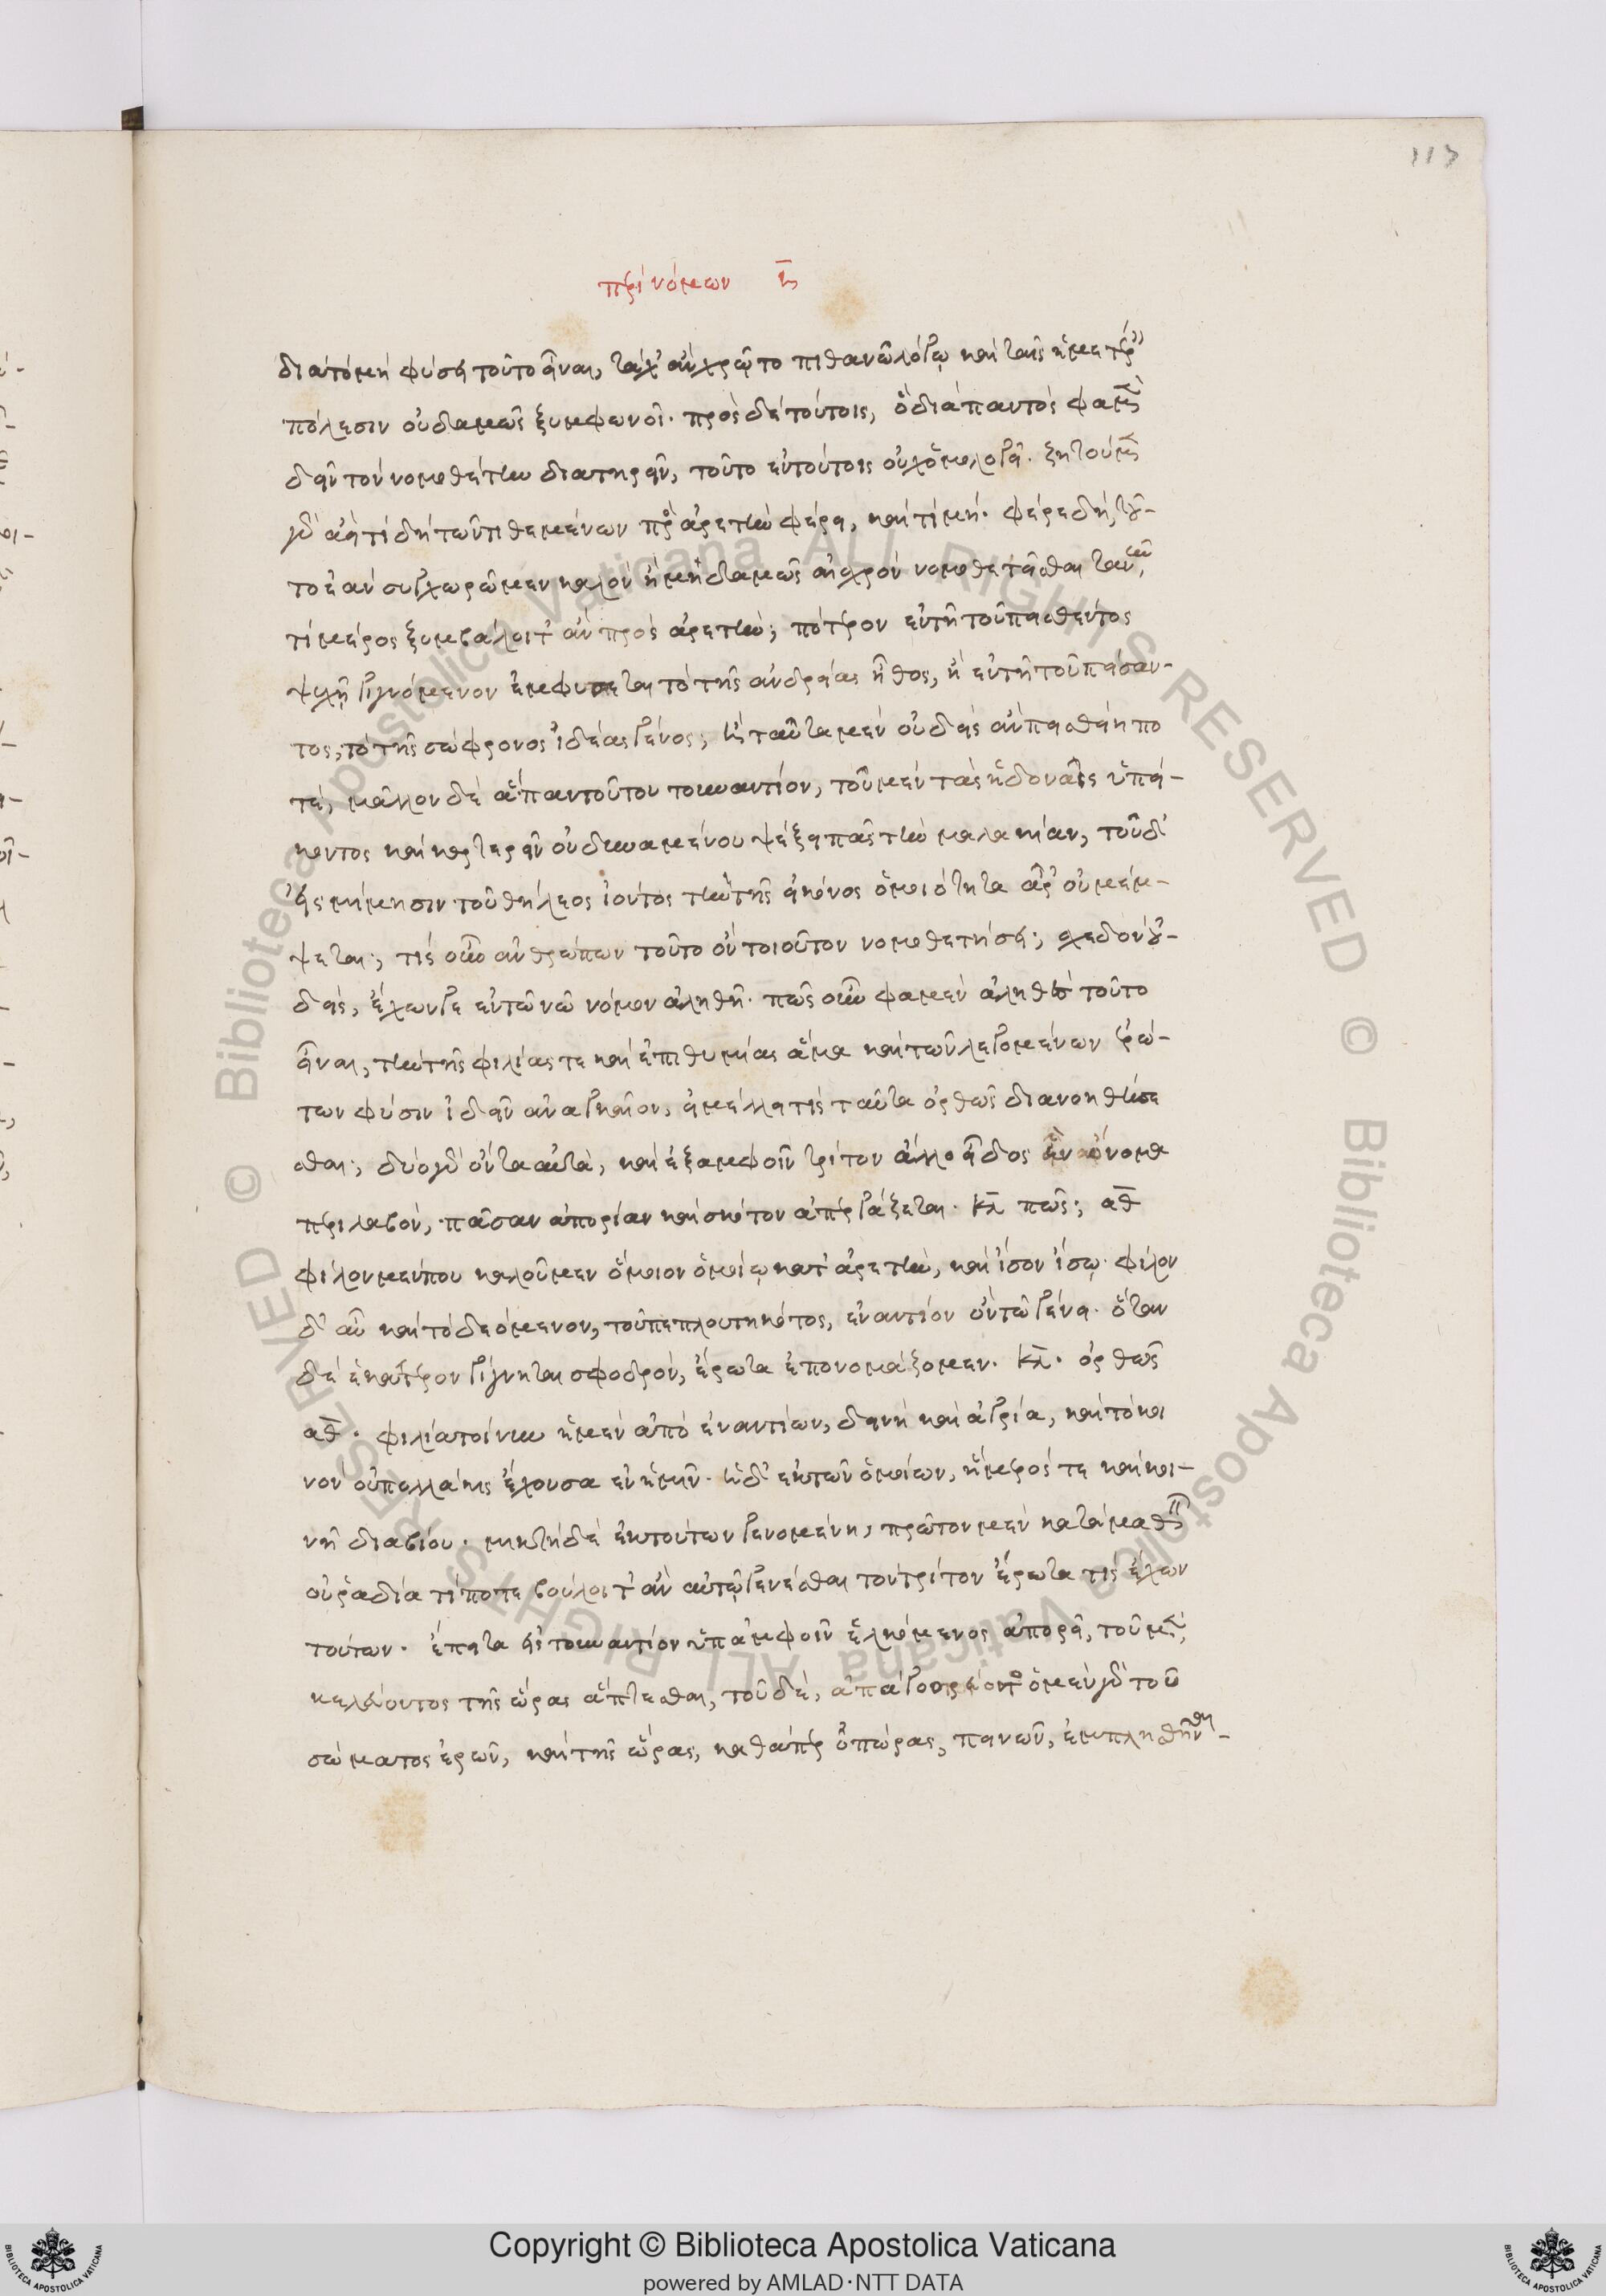 113
περὶ νόμων η̄
διὰ τὸ μὴ φύσει τοῦτο εἶναι, τάχ' ἂν χρῷτο πιθανῶ λόγῳ καὶ ταῖς ἡμετέρ
πόλεσιν οὐδαμῶς ξυμφωνοῖ. πρὸς δὲ τούτοις, ὃ διὰ παντὸς φαμὲν
δεῖν τὸν νομοθέτην διατηρεῖν, τοῦτο ἐν τούτοις οὐχ ὁμολογεῖ. ζητοῦμεν
γὰρ ἀεὶ τί δὴ τῶν τιθεμένων πρὸς ἀρετὴν φέρει, καὶ τί μή. φέρε δὴ, τοῦ-
το ἐὰν συγχωρῶμεν καλὸν ἢ μηδαμῶς αἰσχρὸν νομοθετεῖσθαι τανῦν,
τί μέρος ξυμβάλοιτ' ἂν πρὸς ἀρετήν; πότερον ἐν τῇ τοῦ πεισθέντος
ψυχῇ γιγνόμενον ἐμφύσεται τὸ τῆς ἀνδρείας ἦθος, ἢ ἐν τῇ τοῦ πείσαν-
τος, τὸ τῆς σώφρονος ἰδέας γένος; ἢ ταῦτα μὲν οὐδεὶς ἂν πεισθείη πο
τέ, μᾶλλον δὲ ἅπαν τούτου τοὐναντίον, τοῦ μὲν τὰς ἡδοναῖς ὑπεί-
κοντος καὶ καρτερεῖν οὐ δυναμένου ψέξει πᾶς τὴν μαλακίαν, τοῦ δ'
εἰς μίμησιν τοῦ θήλεος ἰόντος τὴν τῆς εἰκόνος ὁμοιότητα ἆρ' οὐ μέμ-
ψεται; τίς οὖν ἀνθρώπων τοῦτο ὂν τοιοῦτον νομοθετήσει; σχεδὸν οὐ-
δεὶς, ἔχων γε ἐν τῶ νῶ νόμον ἀληθῆ. πῶς οὖν φαμὲν ἀληθὲς τοῦτο
εἶναι, τὴν τῆς φιλίας τε καὶ ἐπιθυμίας ἅμα καὶ τῶν λεγομένων ἐρώ-
των φύσιν ἰδεῖν ἀναγκαῖον, εἰ μέλλει τίς ταῦτα ὀρθῶς διανοηθήσε
σθαι; δύο γὰρ ὄντα αὐτὰ, καὶ ἐξ ἀμφοῖν τρίτον ἄλλο εἶδος ἓν ὄνομα
περιλαβὸν, πᾶσαν ἀπορίαν καὶ σκότον ἀπεργάζεται. κλ̄ πῶς; αθ̄
φίλον μέν που καλοῦμεν ὅμοιον ὁμοίῳ κατ' ἀρετὴν, καὶ ἴσον ἴσῳ. φίλον
δ' αὖ καὶ τὸ δεόμενον, τοῦ πεπλουτηκότος, ἐναντίον ὂν τῶ γένει. ὅταν
δὲ ἑκάτερον γίγνηται σφοδρὸν, ἔρωτα ἐπονομάζομεν. κλ̄. ὀρθῶς
αθ̄. φιλία τοίνυν ἡ μὲν ἀπὸ ἐναντίων, δεινὴ καὶ ἀγρία, καὶ τὸ κοι
νὸν οὐ πολλάκις ἔχουσα ἐν ἡμῖν. ἡ δ' ἐκ τῶν ὁμοίων, ἥμερός τε καὶ κοι-
νὴ διὰ βίου. μικτὴ δὲ ἐκ τούτων γενομένη, πρῶτον μὲν καταμαθεῖν
οὐ ῥαδία τί ποτε βούλοιτ' ἂν αὐτῷ γενέσθαι τὸν τρίτον ἔρωτα τίς ἔχων
τούτων. ἔπειτα εἰς τοὐναντίον ὑπ' ἀμφοῖν ἑλκόμενος ἀπορεῖ, τοῦ μὲν
κελεύοντος τῆς ὥρας ἅπτεσθαι, τοῦ δὲ, ἀπαγορεύοντος ὁ μὲν γὰρ τοῦ
σώματος ἐρῶν, καὶ τῆς ὥρας, καθάπερ ὀπώρας, πεινῶν, ἐμπλησθῆναι
Copyright © Biblioteca Apostolica Vaticana
powered by AMLAD·NTT DATA